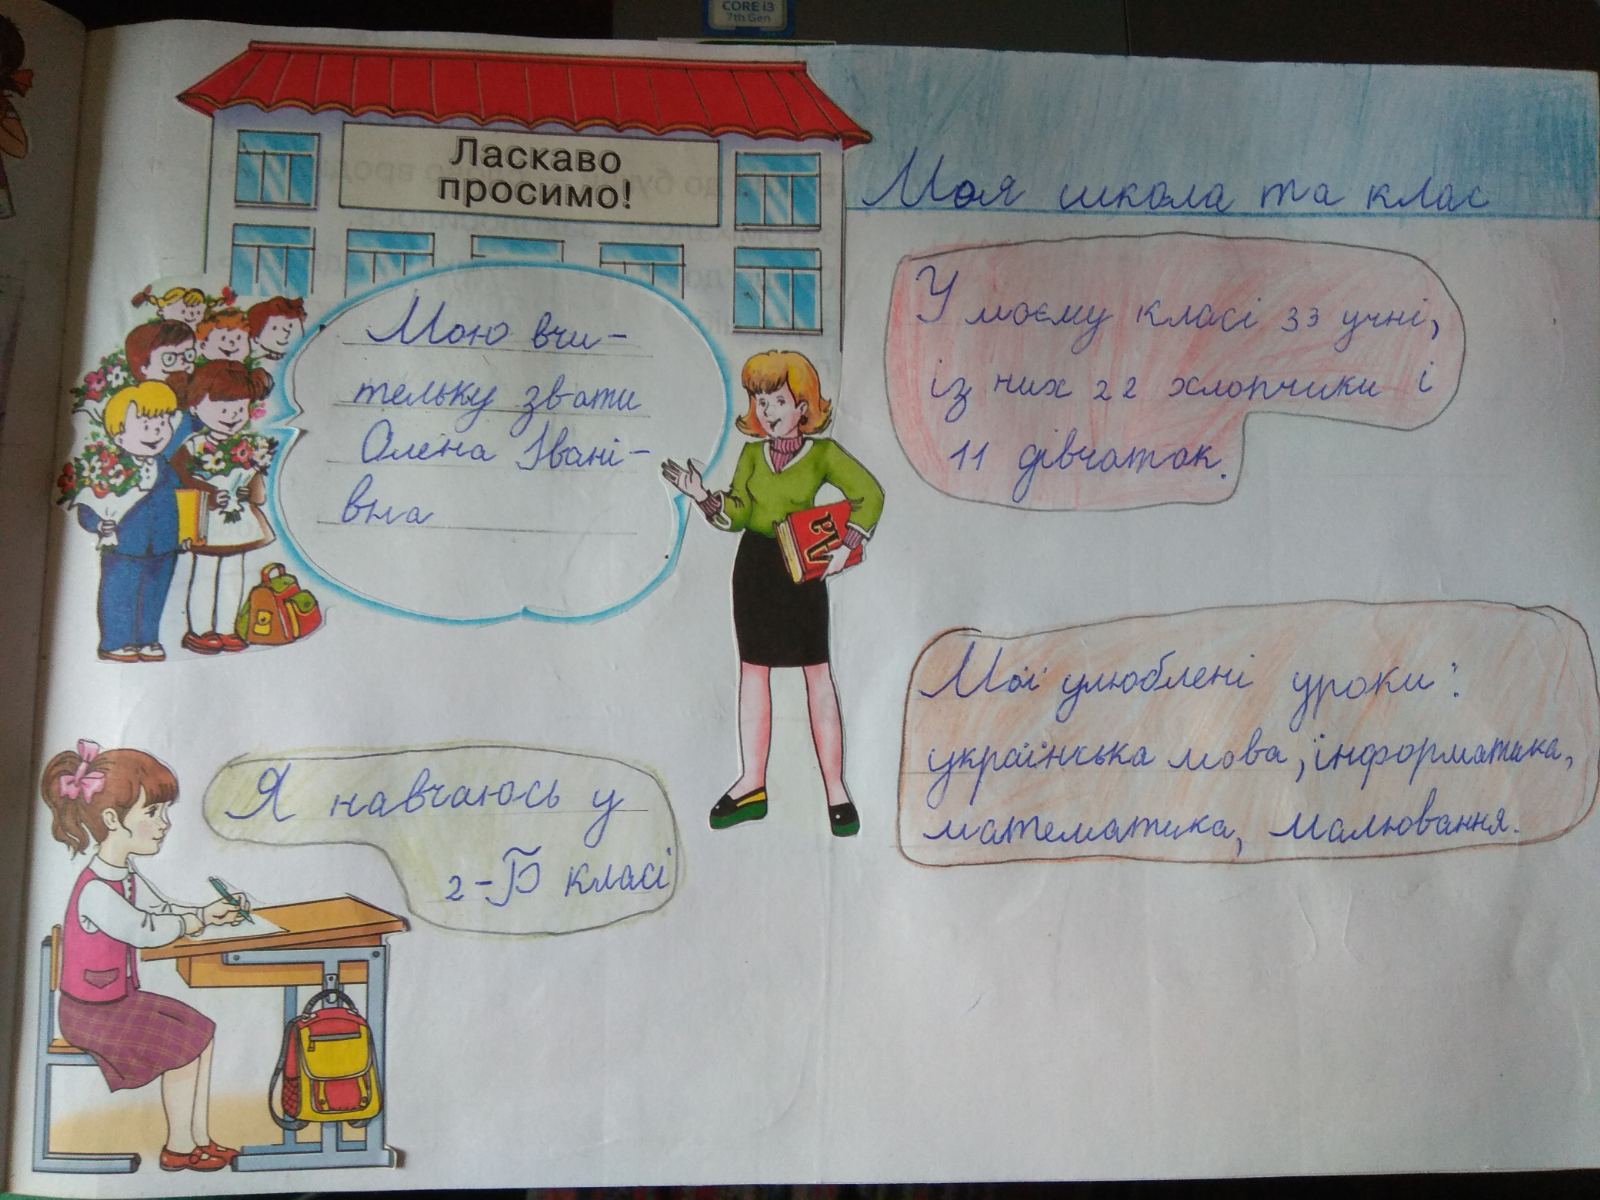 CORE i3
7th Gen
Ласкаво
просимо!
Моя школа та клас
Мою вчи-
тельку звати
Олена Івані-
вна
У моєму класі 33 учні,
із них 22 хлопчики і
11 дівчаток.
Мої улюблені уроки:
українська мова, інформатика,
математика, малювання.
Я навчаюсь у
2-Б класі